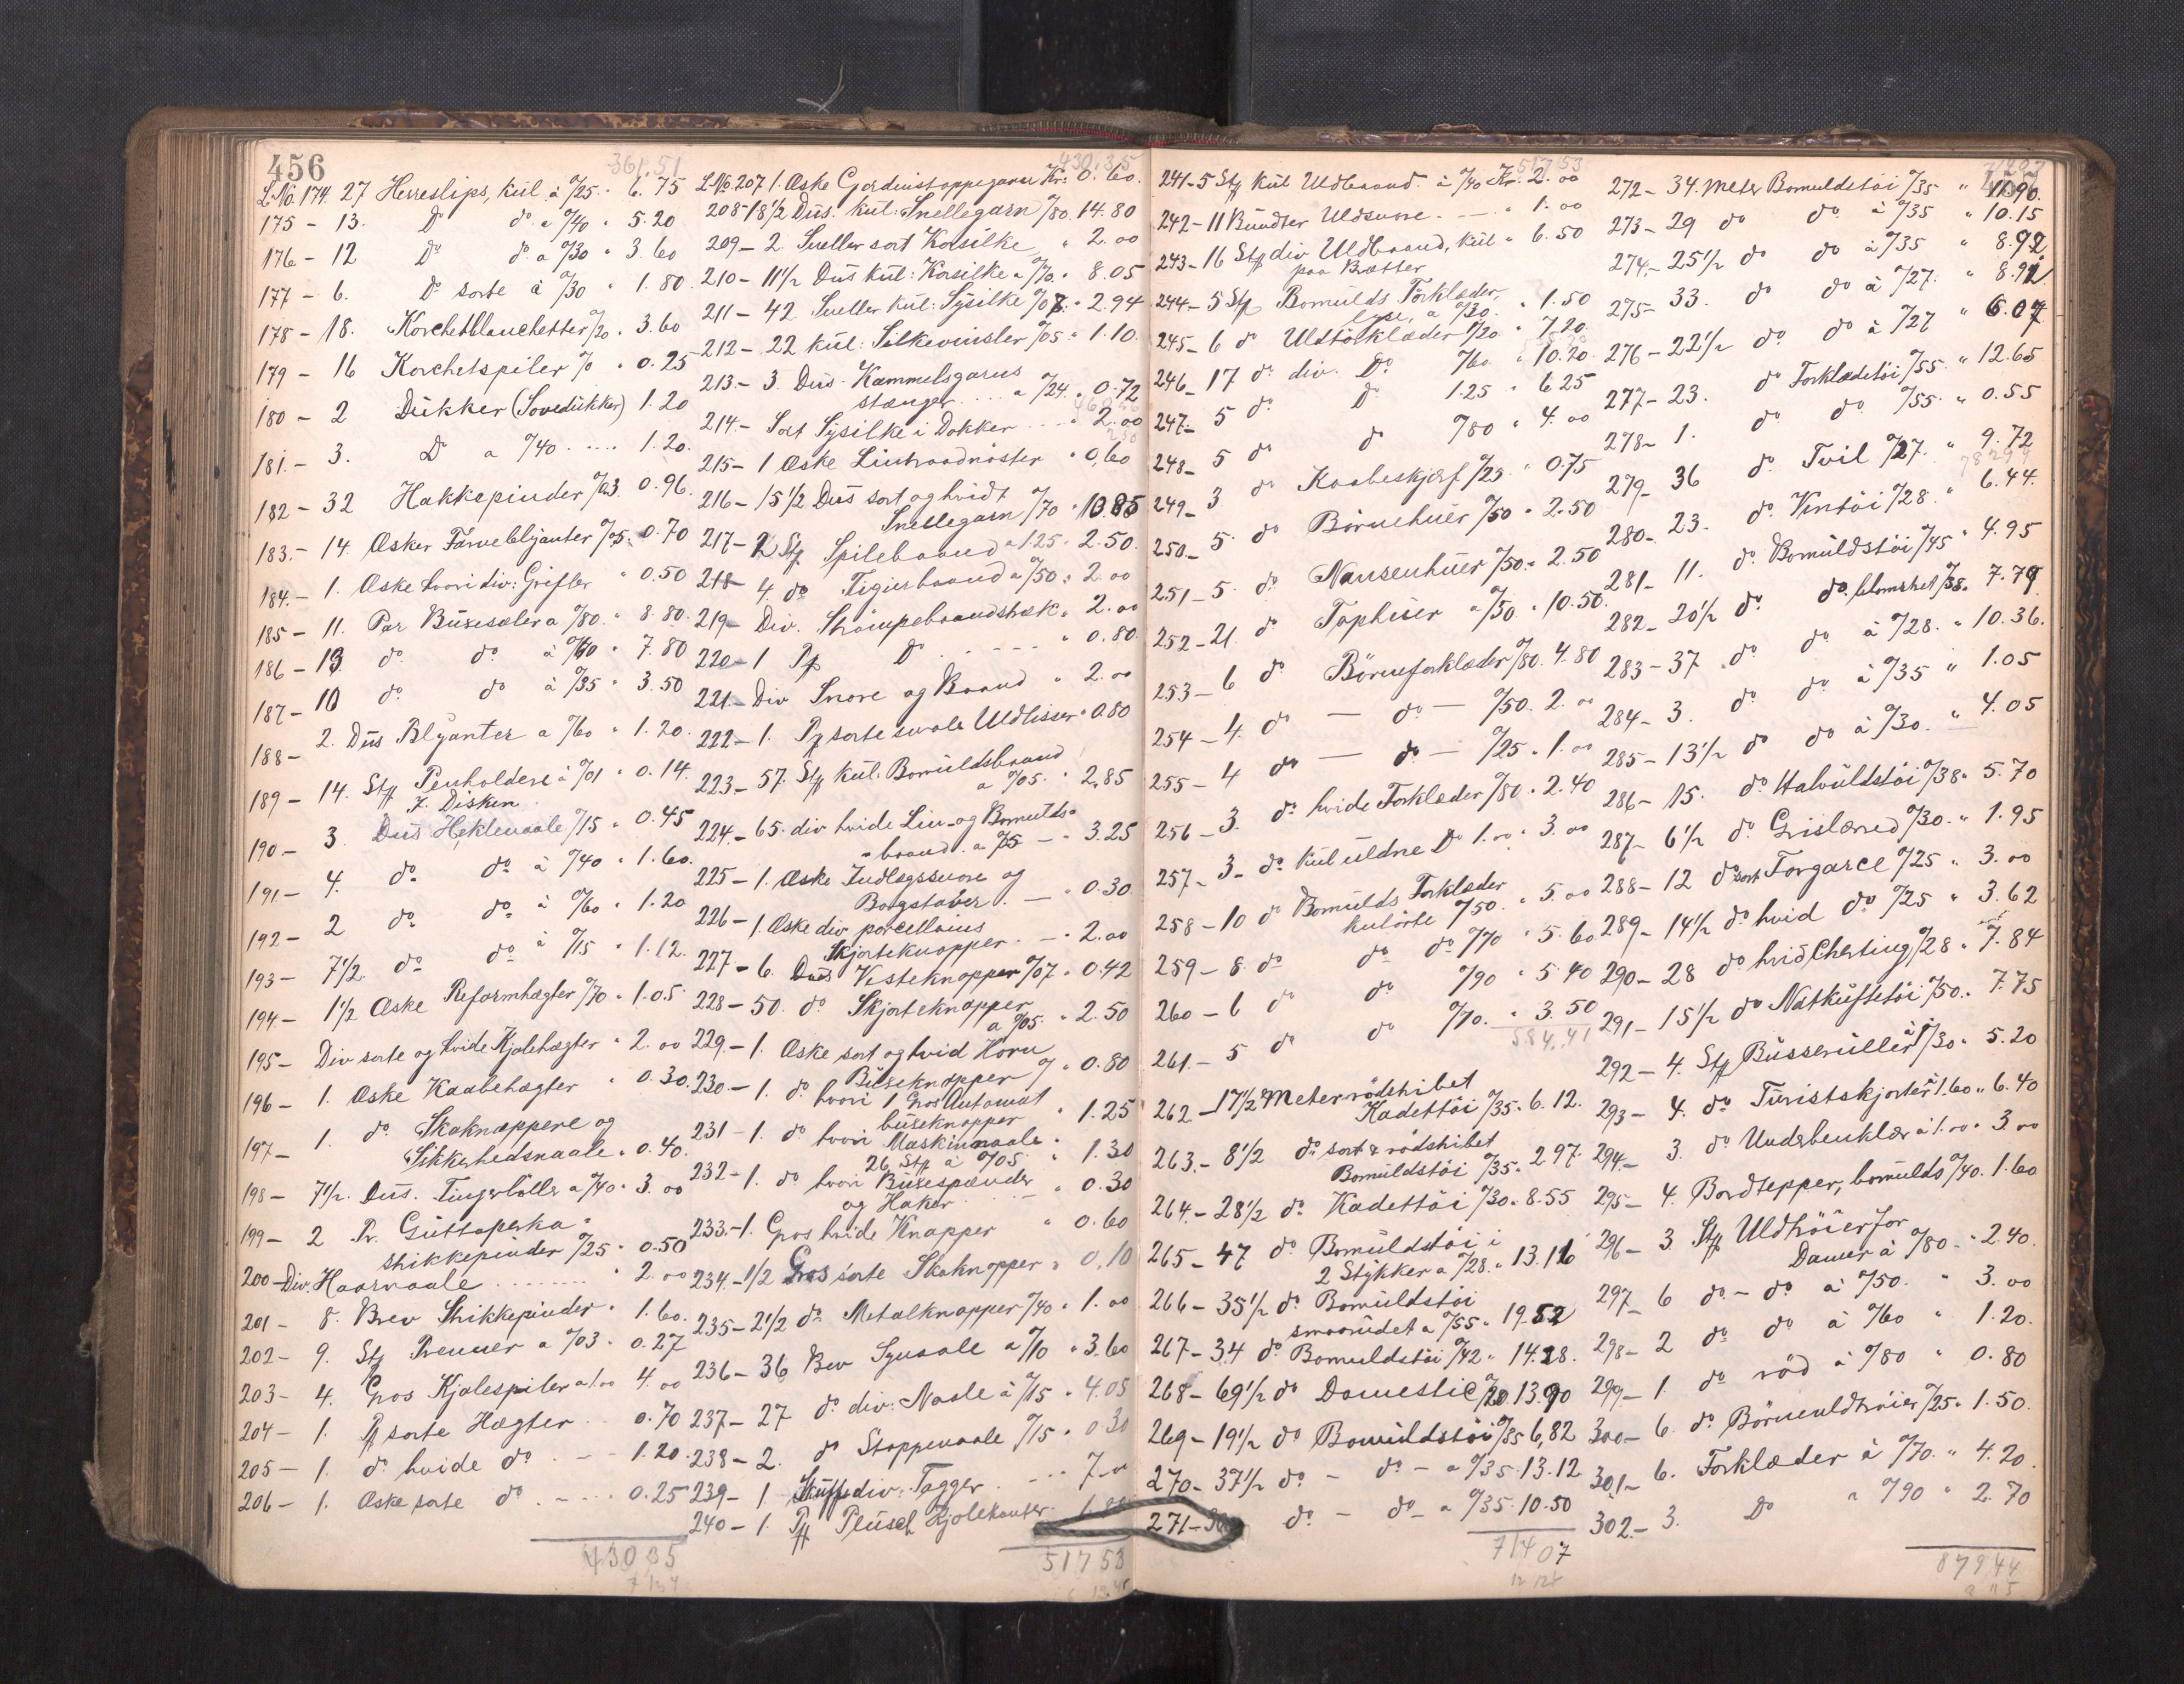 456
361.51
L.No. 174. 27 Herreslips, kul. à %25 " 6.75
175 - 13. Do do a %40 " 5.20
176 - 12 Do do a %30 " 3.60
177 - 6. Do sorte à %30 " 1.80
178 - 18. Korchetblanchetter %20 " 3.60
179 - 16 Korchetspiler % " 0.25
180 - 2 Dukker (Sovedukker) 1.20
181. - 3. Do a %40 .... 1.20.
182 - 32 Hakkepinder %03. 0.96.
183. - 14. Æsker Farveblyanter %05. 0.70
184. - 1. Æske hvori div: Grifler " 0.50
185 - 11. Par Buxeseler a %80. " 8.80.
186 - 13 do do à %60 " 7.80
187 - 10 do do à %35 " 3.50
188 - 2. Dus Blyanter a %60 " 1.20.
189 - 14. Stk Penholdere à %01 " 0.14.
7. Disken.
190. - 3 Dus Heklenaale %15 " 0.45
191 - 4. do do à %40 " 1.60.
192 - 2 do do à %60 " 1.20
193 - 7½ do do à %15 " 1.12.
194 - 1½ Æske Reformhægter %70 " 1.05.
195 - Div sorte og hvide Kjolehægter " 2.00
196 - 1. Æske Kaabehægter " 0.30.
197 - 1. do Skoknæppere og
Sikkerhedsnaale " 0.40.
198 - 7½. Dus. Fingerbølle a %40 " 3.00
199 - 2 Pr. Guttaperka "
strikkepinder %25 " 0.50
200 - Div. Haarnaale ........ " 2.00
201 - 8. Brev Strikkepinder " 1.60.
202 - 9. Stk Prenner a %03 " 0.27
203 - 4. Gros Kjolespiler a 1.00 4.00
204 - 1. Pk sorte Hægter .. 0.70
205 - 1. do hvide do . - - 1.20.
206 - 1. Æske sorte do . - ... 0.25
430 35
430.35
L.No. 207 1. Æske Gardinstoppegarn Kr: 0.60.
208 - 18½ Dus. kul: Snellegarn %80. 14.80
209 - 2. Sneller sort Korsilke " 2.00
210 - 11½ Dus kul: Korsilke a %70 " 8.05
211 - 42. Sneller kul: Sysilke %07 " 2.94
212 - 22 kul: Silkevinsler %05 " 1.10.
213 - 3. Dus. Kammelsgarns
stænger .... a %24 " 0.72
214. - Sort Sysilke i Dokker ... " 2.00
215 - 1 Æske Lintraadnøster " 0,60
216 - 15½ Dus sort og hvidt
Snellegarn %70 " 10.85
217 - 2 Stk. Spilebaand a 1.25 " 2.50.
218 - 4. do Figierbaand a %50 " 2.00
219 - Div. Strømpebaandstræk " 2.00
220 - 1 Pk Do . - - - - " 0.80.
221. - Div Snore og Baand " 2.00
222 - 1. Pk sorte smale Uldlisser " 0.80
223 - 57. Stk kul. Bomuldsbaand
a %05 " 2.85
224. - 65. div hvide Lin- og Bomulds-
baand. a %5 - " 3.25
225 - 1. Æske Indlægssnore og
Bogstaver. - " 0.30
226 - 1. Æske div porcellains
Skjorteknapper. - " 2.00
227 - 6. Dus Vesteknapper %07 " 0.42
228 - 50. do Skjorteknapper
a %05 " 2.50
229. - 1. Æske sort og hvid Horn
Buxeknapper " 0.80
230. - 1. do hvori 1 Gros Automat
buxeknapper " 1.25
231 - 1. do hvori Maskinnaale
26 Stk à %05 " 1.30
232 - 1. do hvori Buxespænder
og Haker .. - " 0.30
233. - 1. Gros hvide Knapper " 0.60
234 - ½ Gros sorte Skoknapper " 0,10
235 - 2½ do Metalknapper %40 " 1.00
236 - 36 Brev Synaale a %10 " 3.60
237 - 27 do div: Naale à %15 " 4.05
238 - 2. do Stoppenaale %15 " 0.30
239 - 1 Skuffe div: Tagger. ... 7.00
240 - 1. Pk Plusch Kjolekanter
517 53
517 53
241 - 5 Stk kul Uldbaand. à %40 Kr. 2.00
242 - 11 Bundter Uldsnore. - - " 1.00
243 - 16 Stk div Uldbaand, kul " 6.50
paa Brætter
244 - 5 Stk Bomulds Törklæder,
lyse, a %30. " 1.50
245 - 6 do Uldtörklæder %20 " 7.20.
246 - 17 do div. Do %60 " 10.20.
247. - 5 do Do 1.25 " 6.25
248 - 5 do do %80 " 4.00
249 - 3 do Kaabeskjærf %25 " 0.75
250 - 5. do Börnehuer %50 " 2.50
251 - 5. do Nansenhuer %50 " 2.50
252 - 21. do Tophuer a %50 " 10.50.
253 - 6 do Börneforklæder %80. 4.80
254 - 4. do - do - %50. 2.00
255 - 4 do - do - %25. 1.00
256 - 3. do hvide Forklæder %80 " 2.40
257 - 3. do kul uldne Do 1.00 " 3.00
258 - 10 do Bomulds Forklæder
kulörte %50 " 5.00
259 - 8. do do %70 " 5.60.
260 - 6 do do %90 " 5.40
261. - 5 do do %70. " 3.50
584.41
262 - 17½ Meter rödstribet
Kadettöi %35 " 6.12.
263. - 8½ do sort & rödstribet
Bomuldstöi %35 " 2.97.
264. - 28½ do Kadettöi %30 " 8.55
265 - 47 do Bomuldstöi i
2 Stykker a %28 " 13.16
266 - 35½ do Bomuldstöi
smaarudet a %55 " 19.52
267 - 34 do Bomuldstöi %42 " 14.28.
268 - 69½ do Domestic %20 13.90
269 - 19½ do Bomuldstöi %35 6,82
270 - 37½ do - do - a %35. 13.12
271 - 30 do - do - a %35. 10.50
714 07
272 - 34. Meter Bomuldstöi %35 " 11.90.
273 - 29 do do à %35 " 10.15
274. - 25½ do do à %35 " 8.92
275 - 33. do do à %27. " 8.91
276 - 22½ do do à %27 " 6.07
277 - 23. do Forklædetöi %55 " 12.65
278 - 1. do do %55. " 0.55
279 - 36 do Tvil %27. " 9.72
280 - 23. do Vintöi %28. " 6.44.
281 - 11. do Bomuldstöi %45 " 4.95
282 - 20½ do do blomstret %38. 7.79
283 - 37 do do à %28. " 10.36.
284 - 3. do do à %35 " 1.05
285 - 13½ do do à %30. " 4.05
286 - 15. do Halvuldstöi %38 " 5.70
287 - 6½ do Grislærred %30. " 1.95
288 - 12 do sort Forgarce %25 " 3.00
289 - 14½ do hvid do %25 " 3.62
290 - 28 do hvid Cherting %28 " 7.84
291 - 15½ do Natkuftetöi %50. " 7.75
292 - 4. Stk Busseruller à 1/30 " 5.20
293 - 4. do Turistskjorter 1.60 " 6.40
294. - 3. do Underbenklær à 1.00 " 3.00
295 - 4. Bordtepper, bomulds %40. 1.60
296 - 3 Stk Uldtröier for
Damer à %80 " 2.40.
297 - 6 do - do à %50. " 3.00
298 - 2 do do à %60 " 1.20.
299 - 1. do röd à %80 " 0.80
300 - 6. do Börneuldtröier %25 " 1.50.
301 - 6. Forklæder à %70. " 4.20.
302. - 3. Do a %90 " 2.70
879 44